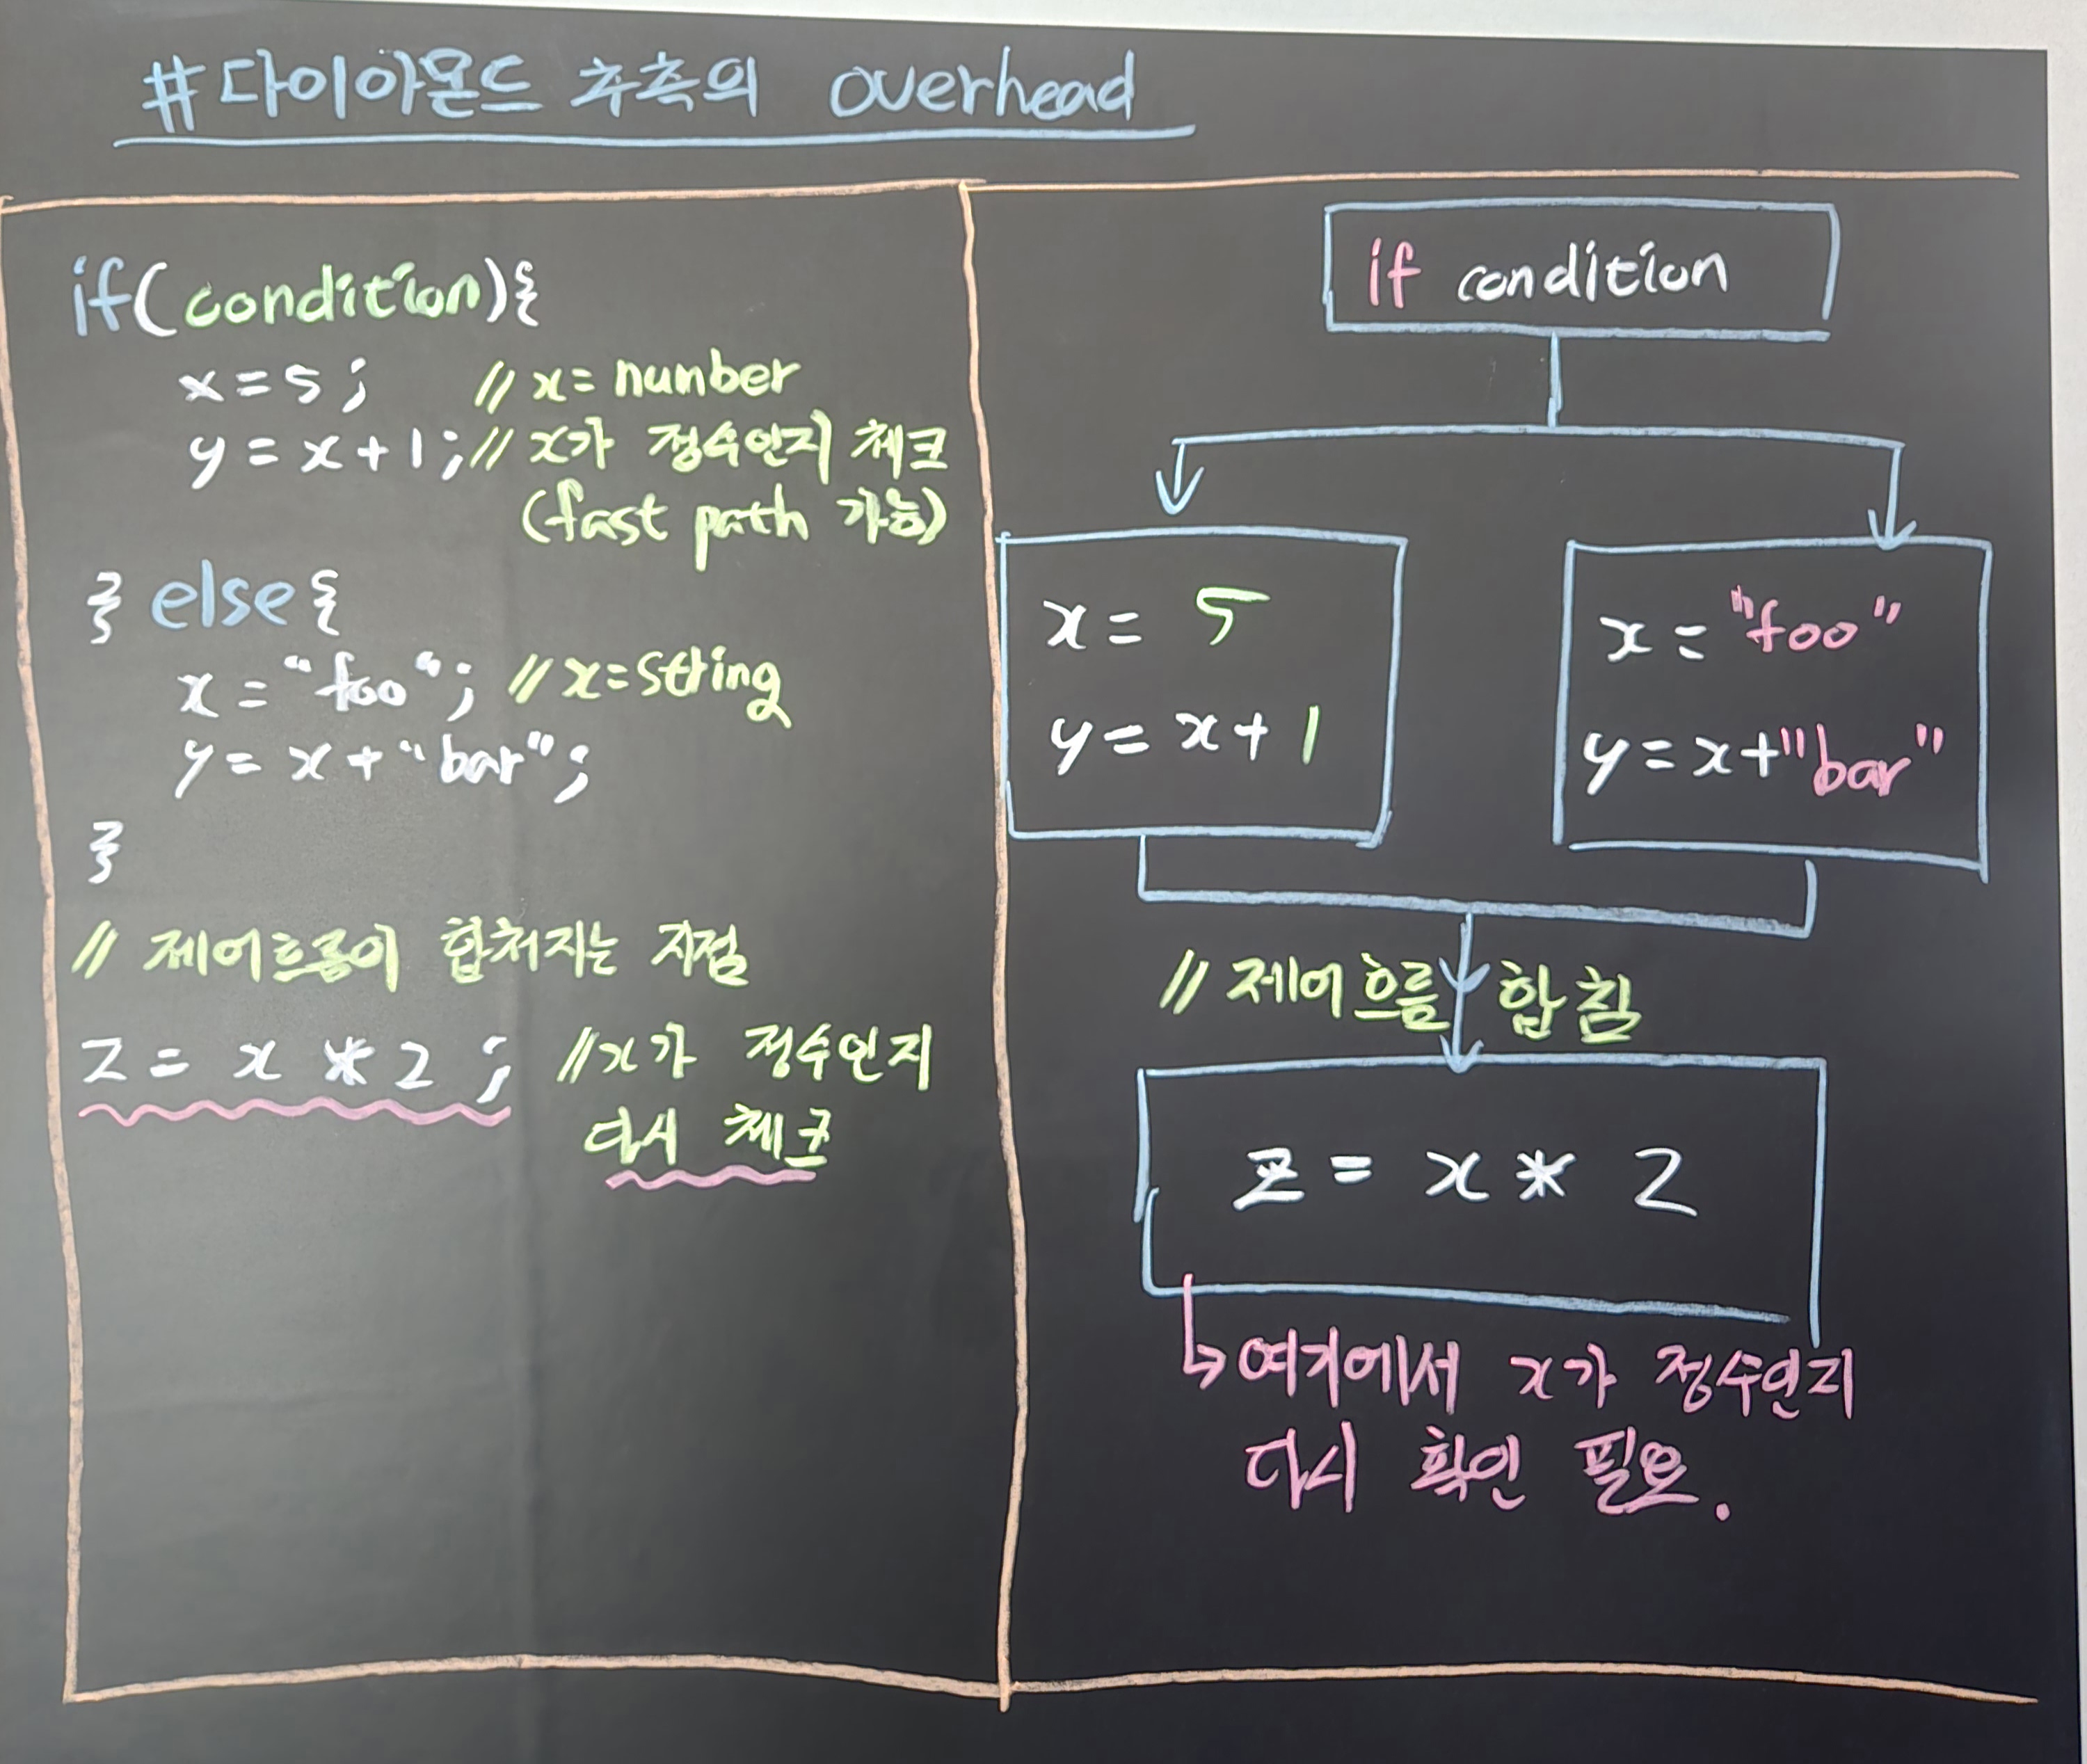 #다이아몬드 추측의 overhead
if(condition){
x=5; // x= number
y=x+1; // x가 정수인지 체크
(fast path 가능)
} else{
x="foo"; // x=string
y=x+"bar";
}
// 제어흐름이 합쳐지는 지점
z = x * 2; //x가 정수인지
다시 체크
if condition
x= 5
y= x+ 1
x="foo"
y=x+"bar"
// 제어흐름 합침
z = x * 2
↳여기에서 x가 정수인지
다시 확인 필요.